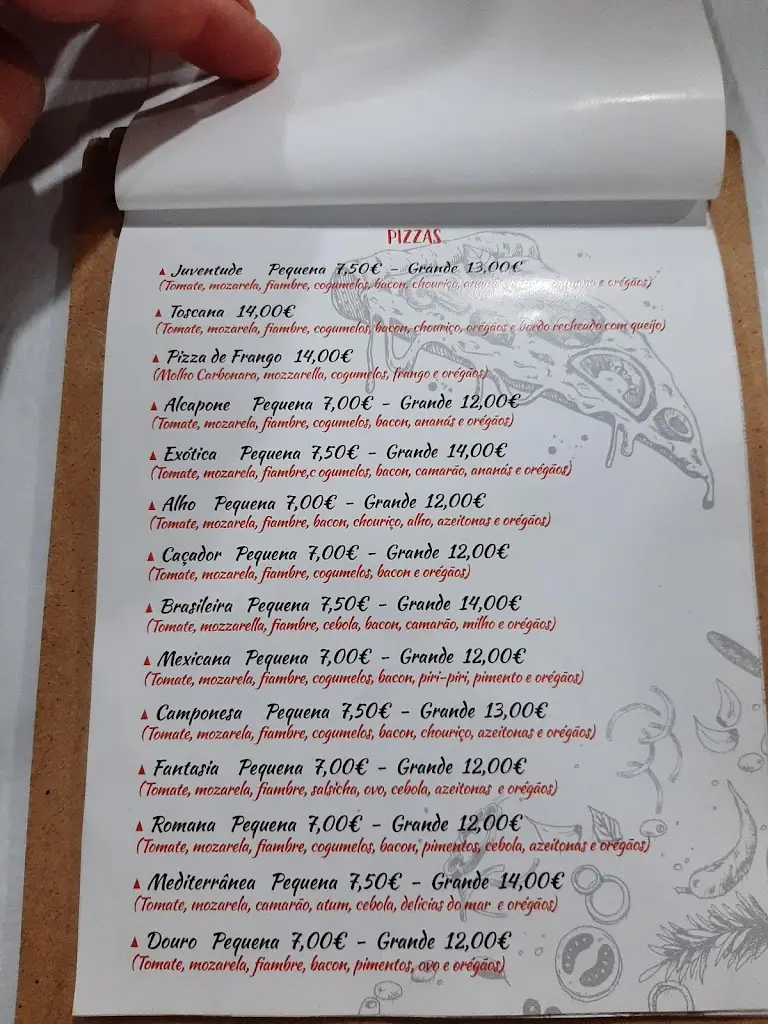 PIZZAS
Juventude Pequena 7,50€ - Grande 13,00€
(Tomate, mozarela, fiambre, cogumelos, bacon, chouriço, e orégãos)
Toscana 14,00€
(Tomate, mozarela, fiambre, cogumelos, bacon, chouriço, orégãos e bordo recheado com queijo)
Pizza de Frango 14,00€
(Molho Carbonara, mozzarella, cogumelos, frango e orégãos)
Alcapone Pequena 7,00€ - Grande 12,00€
(Tomate, mozarela, fiambre, cogumelos, bacon, ananás e orégãos)
Exótica Pequena 7,50€ - Grande 14,00€
(Tomate, mozarela, fiambre,c ogumelos, bacon, camarão, ananás e orégãos)
Alho Pequena 7,00€ - Grande 12,00€
(Tomate, mozarela, fiambre, bacon, chouriço, alho, azeitonas e orégãos)
Caçador Pequena 7,00€ - Grande 12,00€
(Tomate, mozarela, fiambre, cogumelos, bacon e orégãos)
Brasileira Pequena 7,50€ - Grande 14,00€
(Tomate, mozzarella, fiambre, cebola, bacon, camarão, milho e orégãos)
Mexicana Pequena 7,00€ - Grande 12,00€
(Tomate, mozarela, fiambre, cogumelos, bacon, piri-piri, pimento e orégãos)
Camponesa Pequena 7,50€ - Grande 13,00€
(Tomate, mozarela, fiambre, cogumelos, bacon, chouriço, azeitonas e orégãos)
Fantasia Pequena 7,00€ - Grande 12,00€
(Tomate, mozarela, fiambre, salsicha, ovo, cebola, azeitonas e orégãos)
Romana Pequena 7,00€ - Grande 12,00€
(Tomate, mozarela, fiambre, cogumelos, bacon, pimentos, cebola, azeitonas e orégãos)
Mediterrânea Pequena 7,50€ - Grande 14,00€
(Tomate, mozarela, camarão, atum, cebola, delicias do mar e orégãos)
Douro Pequena 7,00€ - Grande 12,00€
(Tomate, mozarela, fiambre, bacon, pimentos, ovo e orégãos)